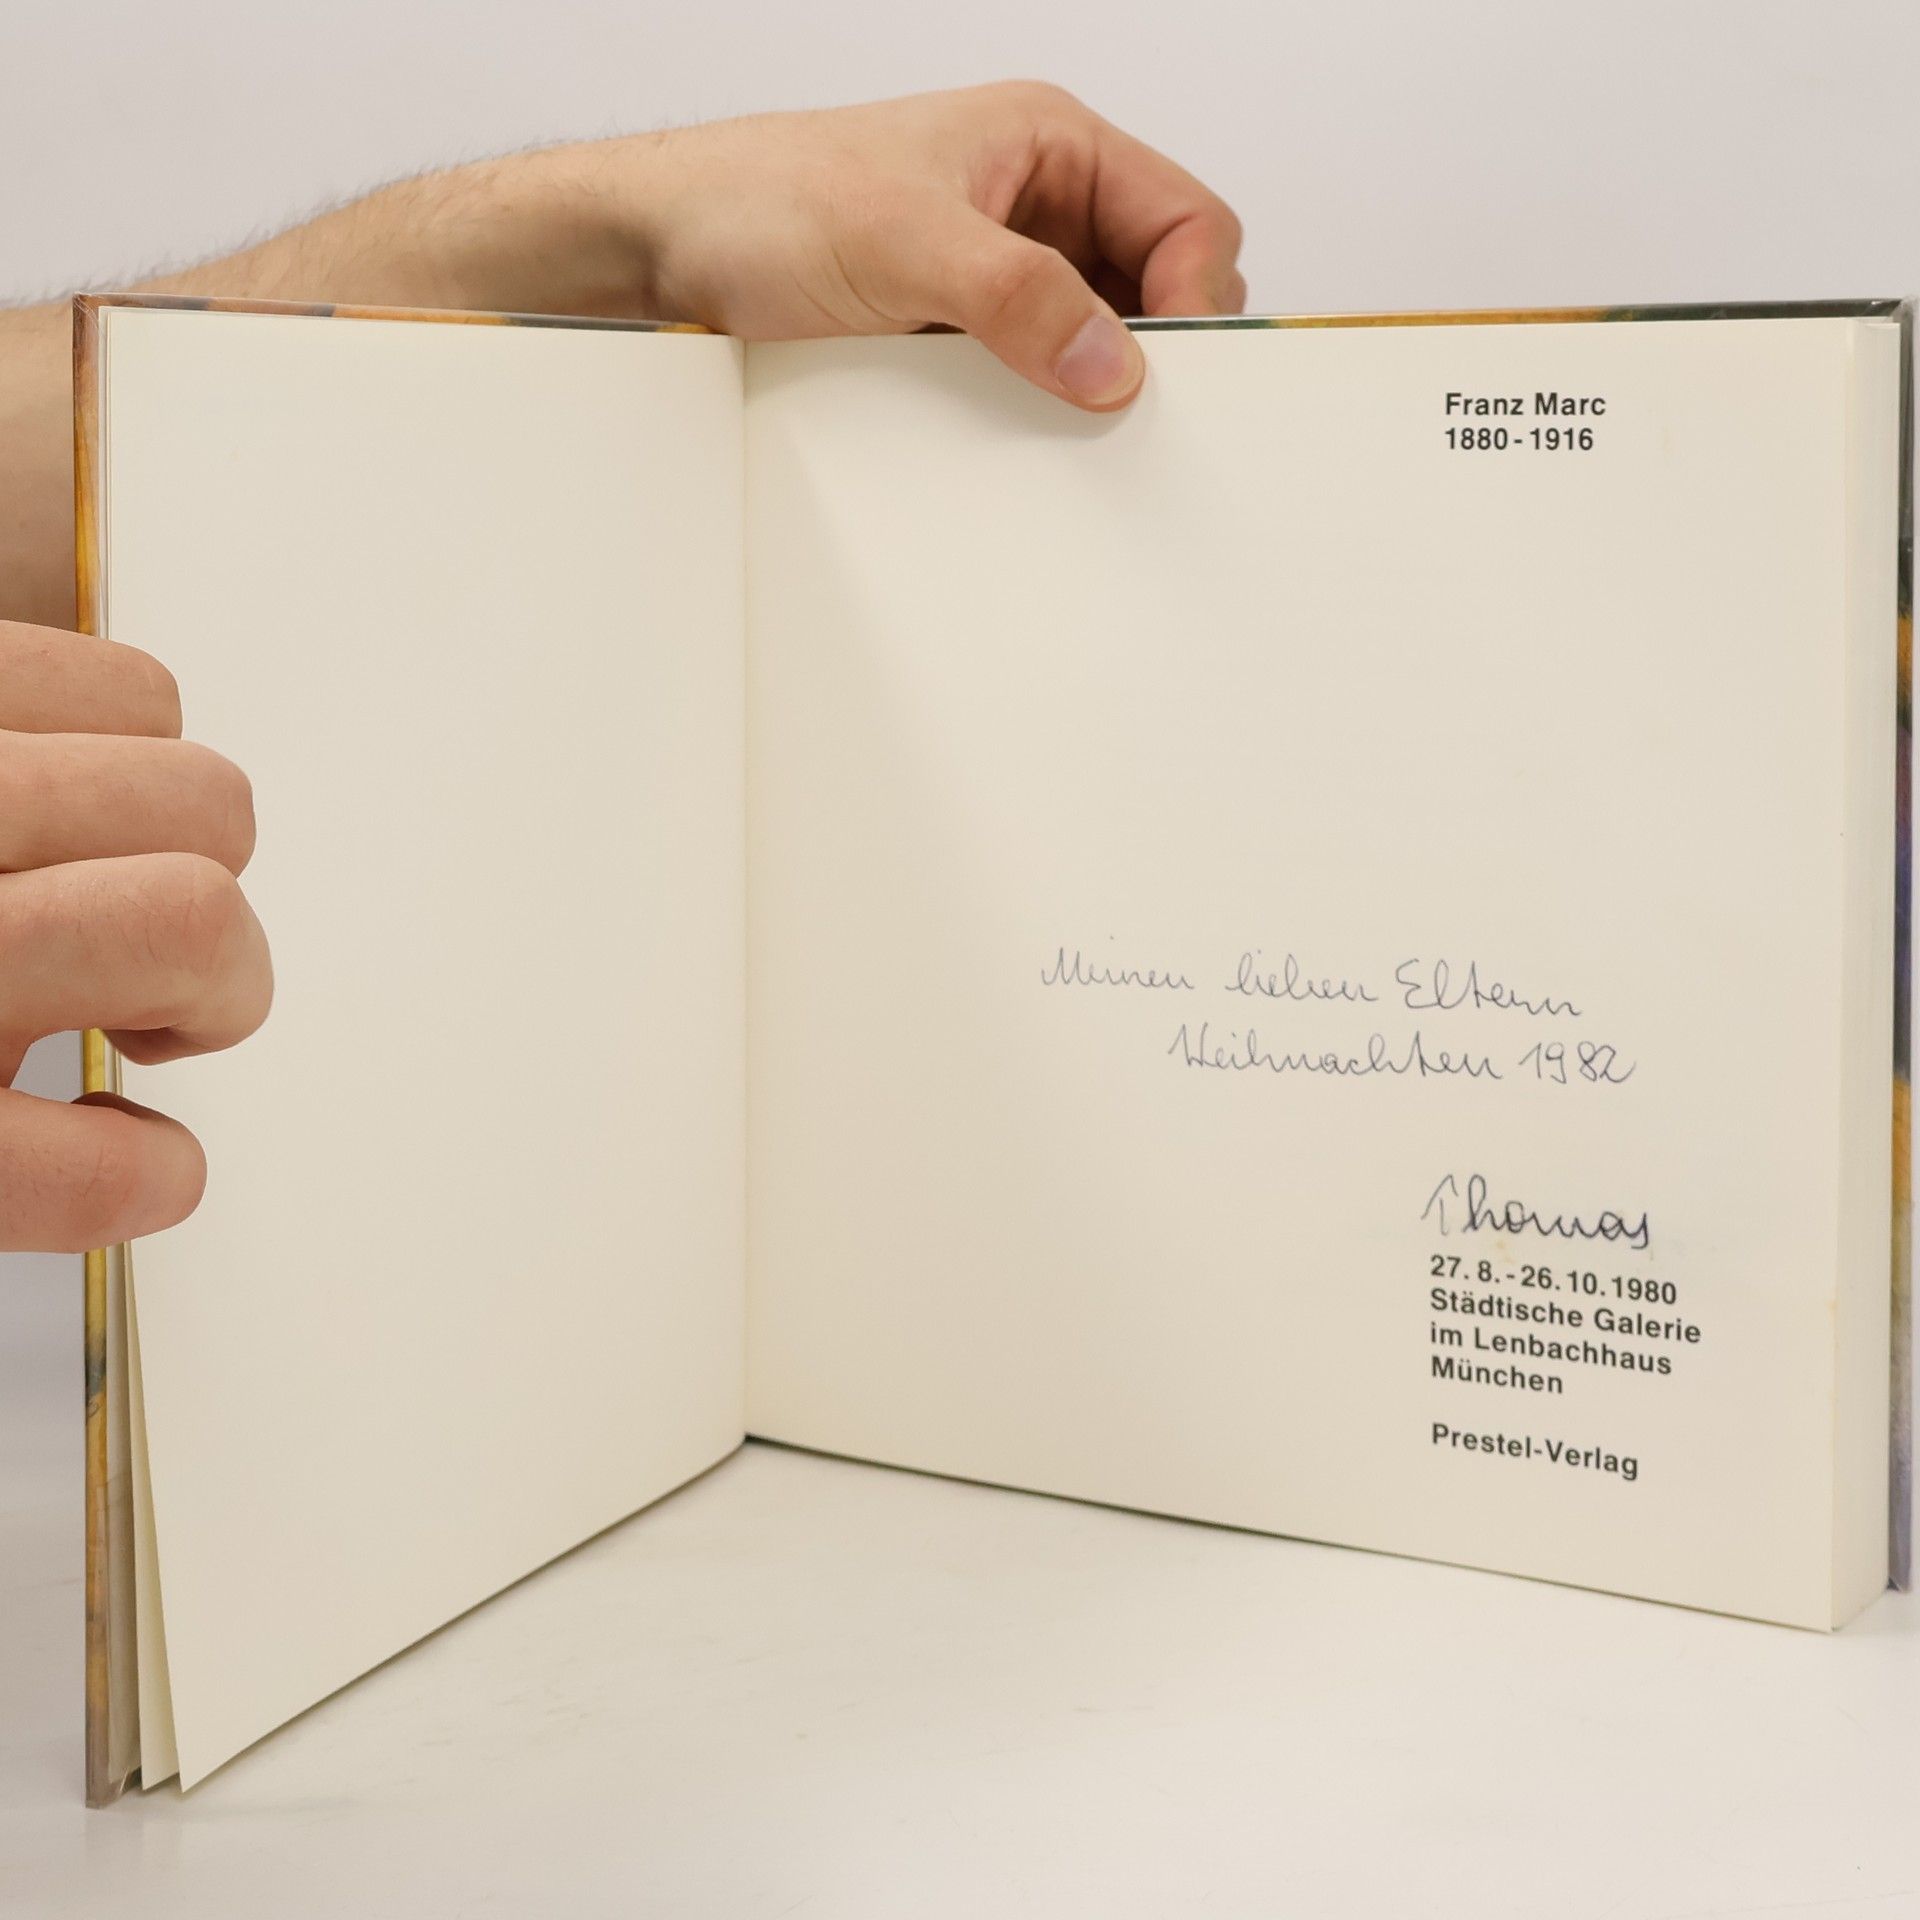 Franz Marc
1880-1916
Meinen lieben Eltern
Weihnachten 1982
Thomas
27. 8.-26. 10. 1980
Städtische Galerie
im Lenbachhaus
München
Prestel-Verlag